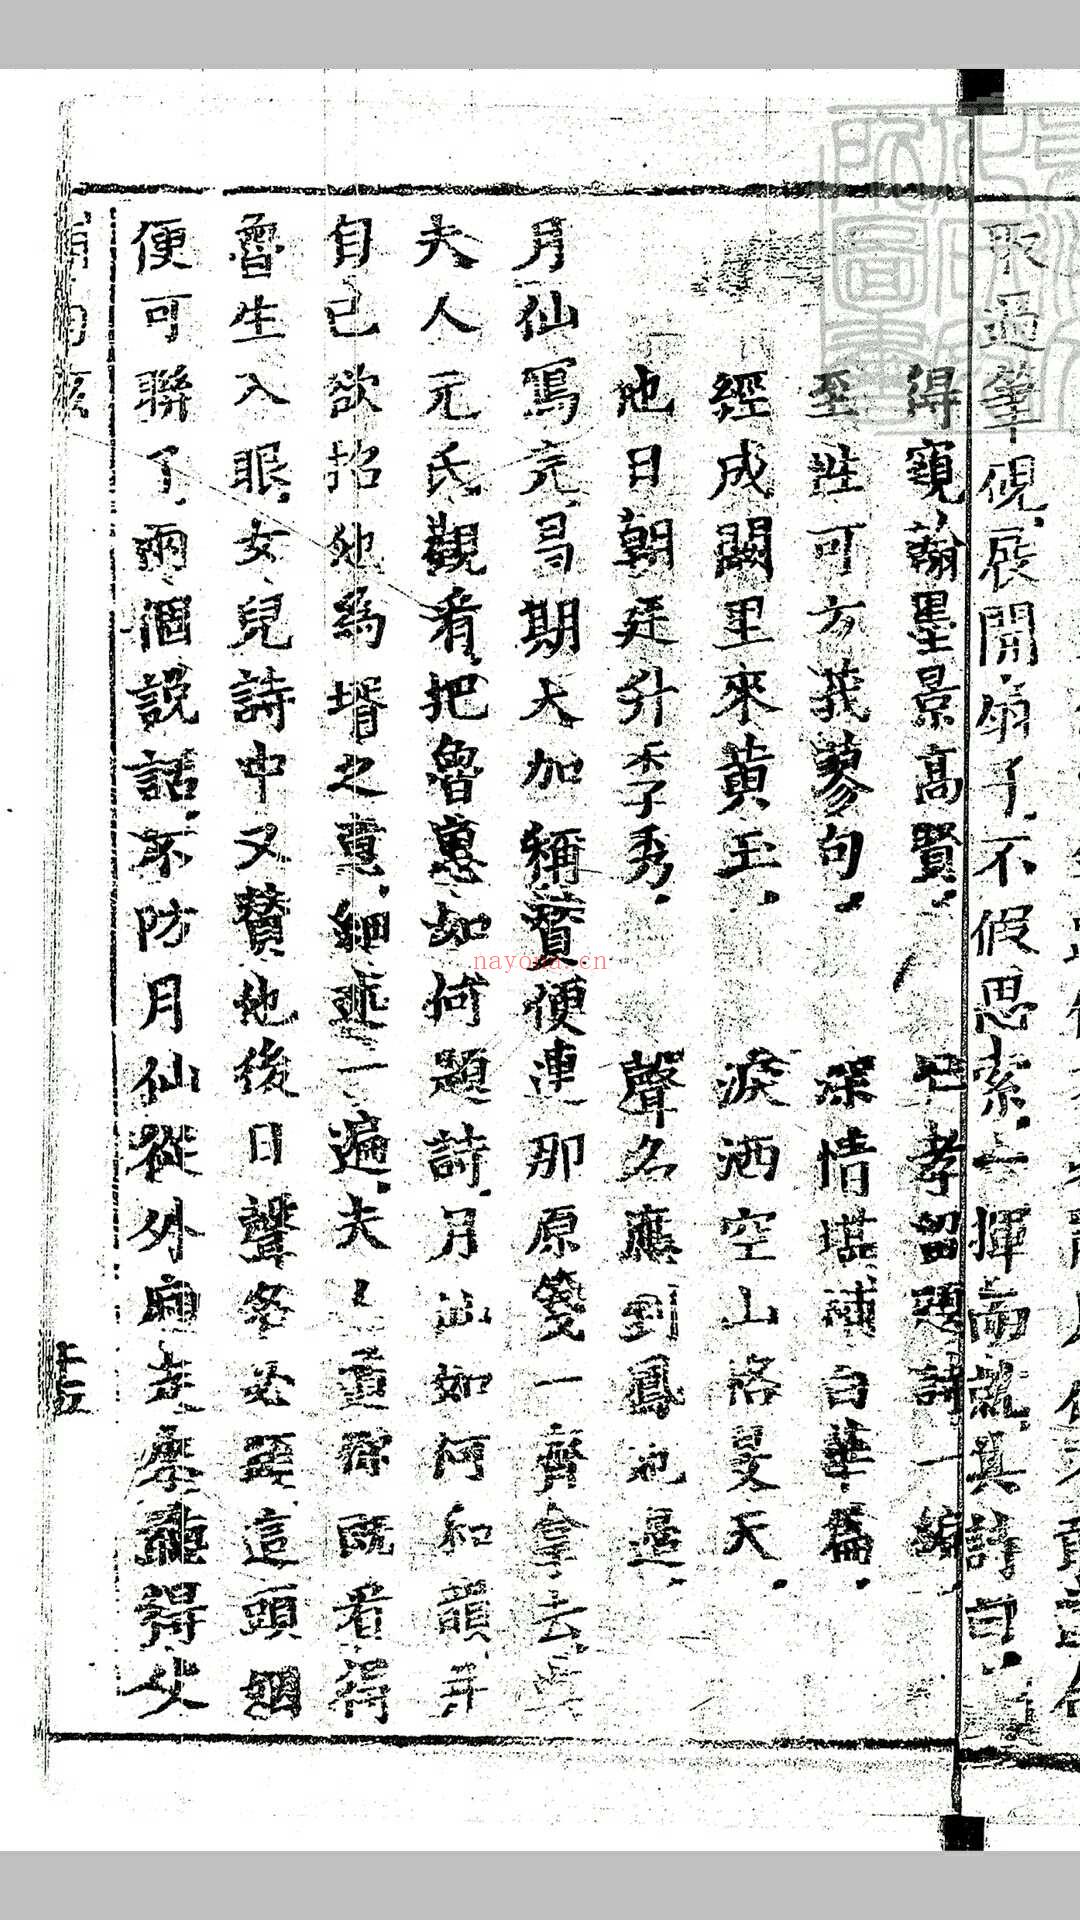 取過筆硯展開扇子不假思索一揮而就其詩曰
得窺翰墨景高賢 已孝留題詩一編
至性可方莪蓼句 深情堪補白華篇
經成闕里來黃玉 淚洒空山格旻天
他日朝廷升季秀 聲名應到鳳池邊
月仙寫完昌期大加稱贊便連那原箋一齊拿去與
夫人元氏觀看把魯惠如何題詩月仙如何和韻并
自己欲招他為壻之意細述一遍夫人道你既看得
魯生入眼女兒詩中又贊他後日聲名必顯這頭姻
便可聯了兩個說話不防月仙從外廂走來聽得父
nayona.cn